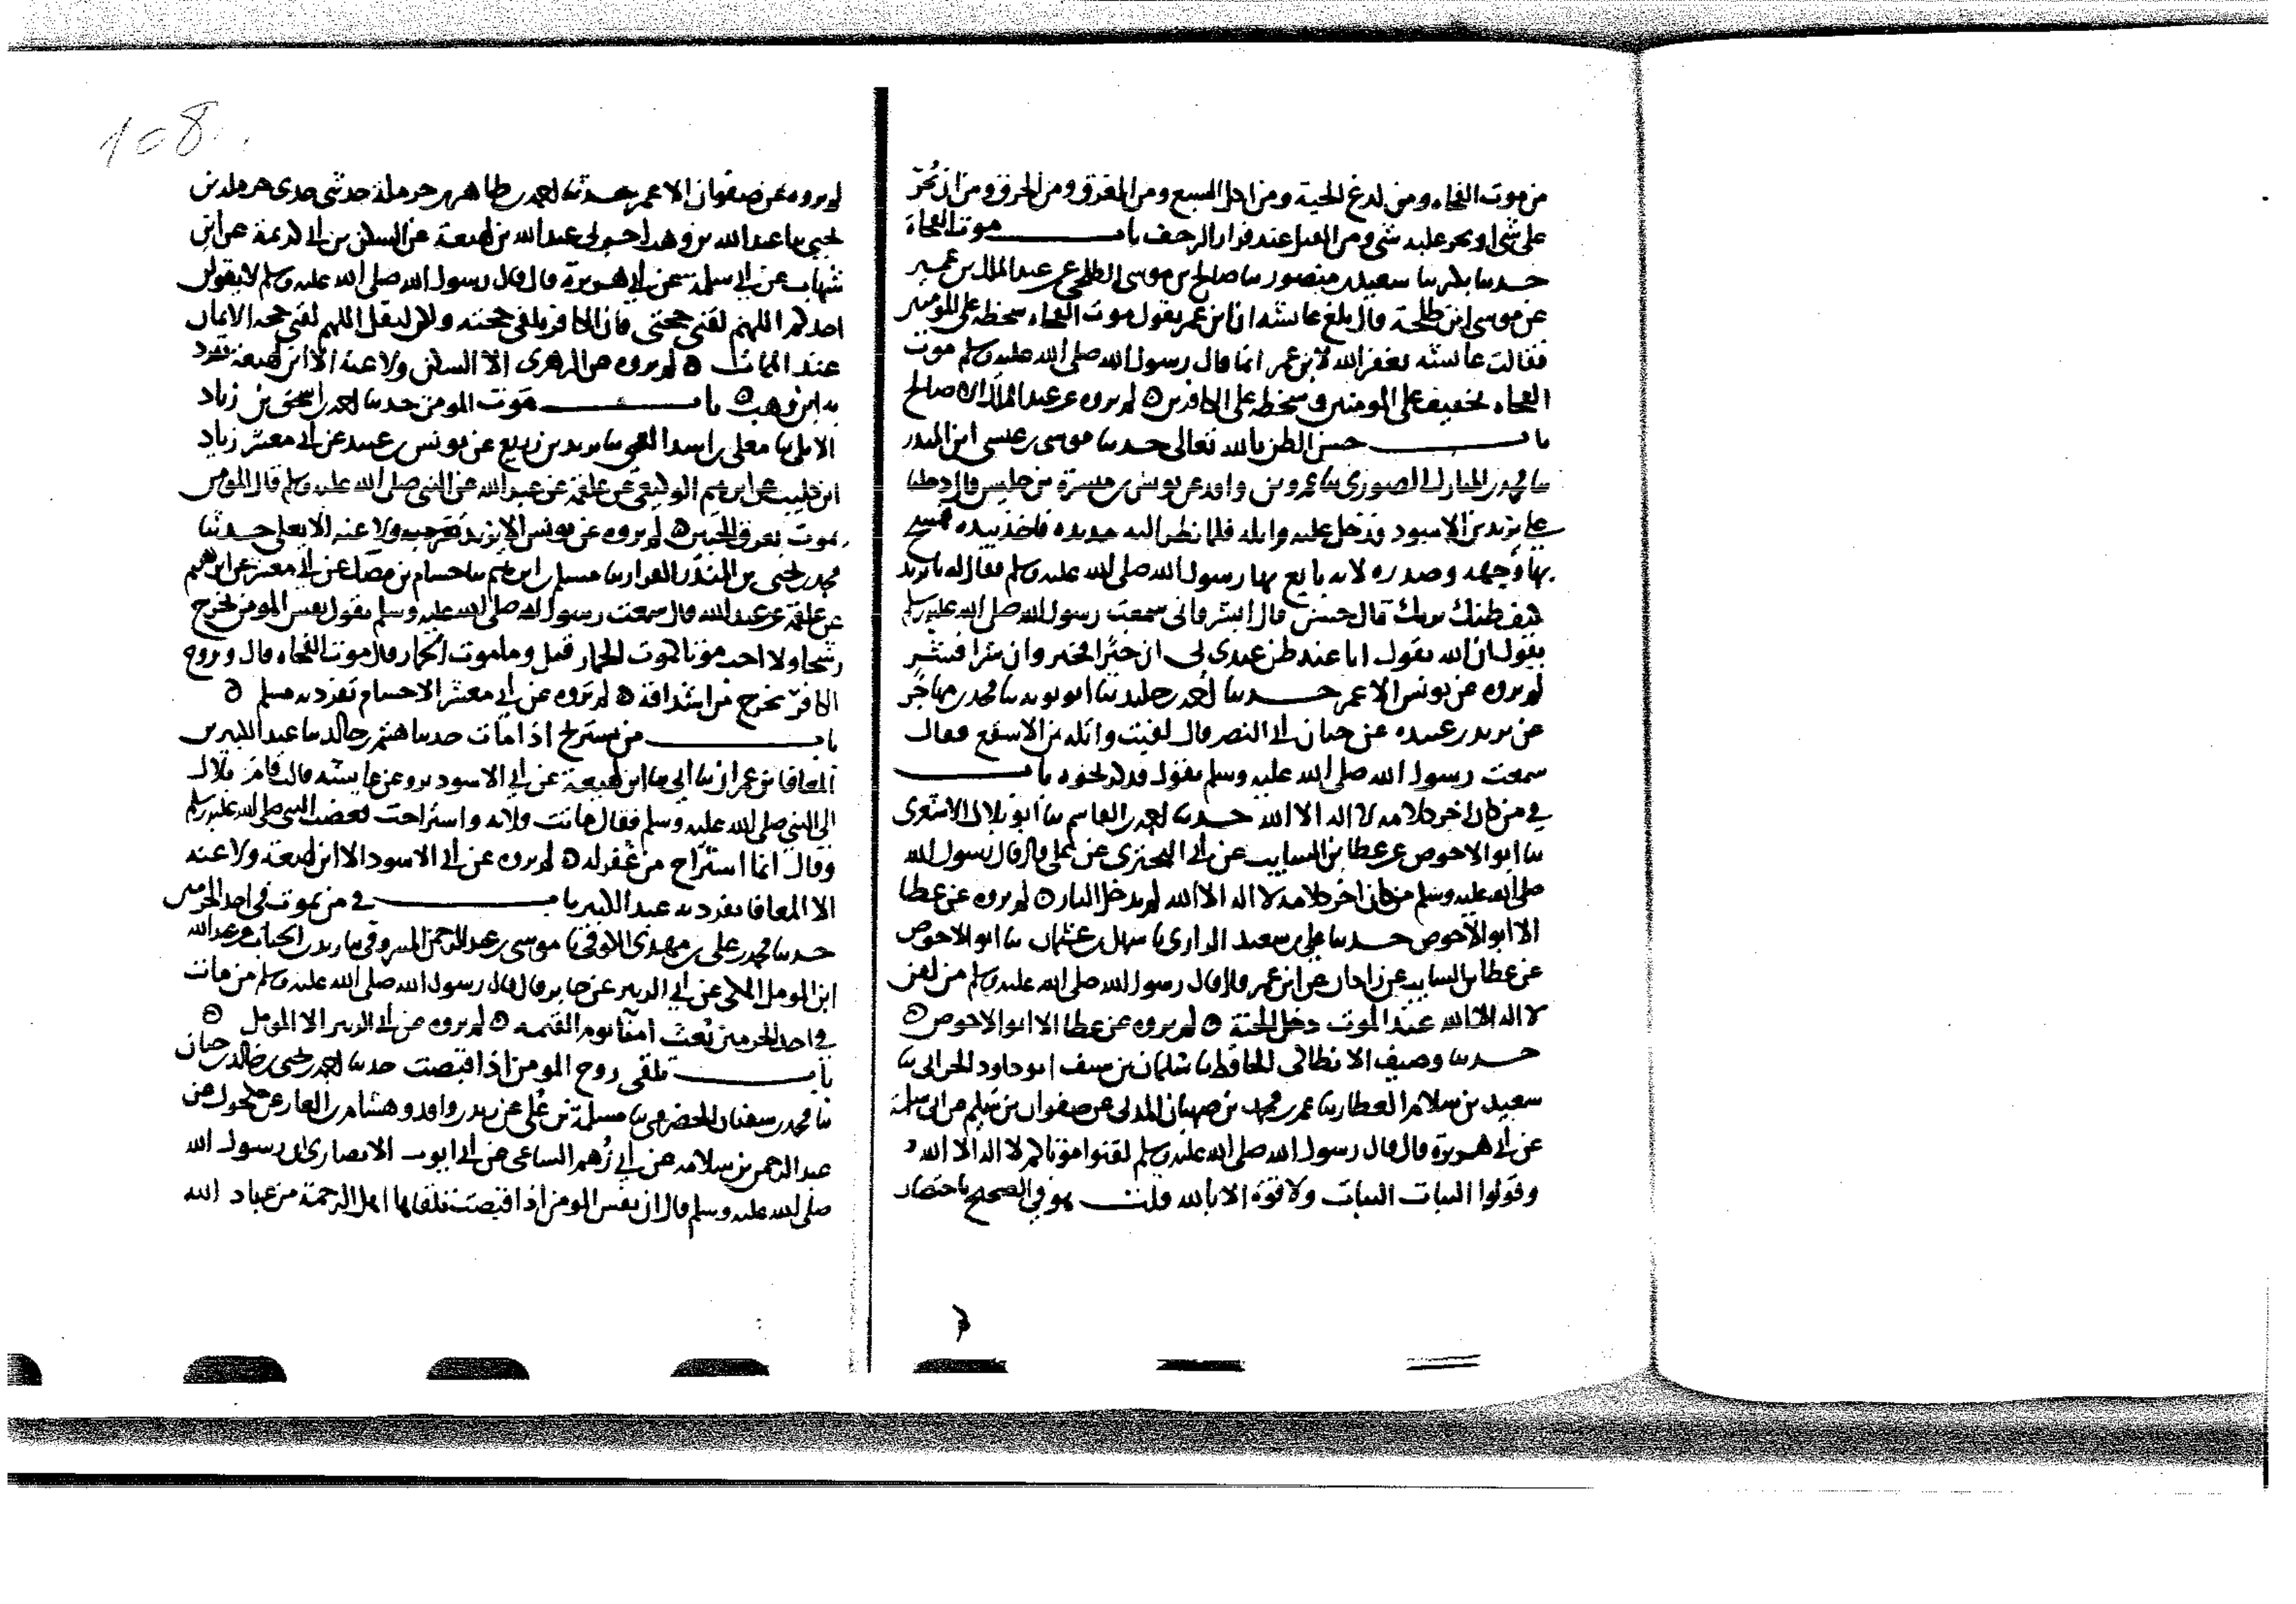 من موت الفجاءة ومن لدغ الحية ومن اكل السبع ومن الغرق ومن الحرق ومن ان يخر
على شي او يخر عليه شي ومن القتل عند فرار الزحف باب موت الفجاة
حدثنا بكر ثنا سعيد بن منصور ثنا صالح بن موسى الطلحي عن عبد الملك بن عمير
عن موسى ابن طلحة قال بلغ عائشه ان ابن عمر يقول موت الفجاه سخطه على المومنين
فقالت عائشه يغفر الله لابن عمر انما قال رسول الله صلى الله عليه وسلم موت
الفجاه تخفيف على المومنين وسخطه على الكافرين ه لم يروه عن عبد الملك الا صالح
باب حسن الظن بالله تعالى حدثنا موسى بن عيسى ابن المنذر
ثنا محمد بن المبارك الصوري ثنا عمرو بن واقد عن يونس بن ميسرة بن حلبس قال دخلنا
على يزيد بن الاسود فدخل عليه واثله فلما نظر اليه مد يده فاخذ بيده فمسح
بها وجهه وصدره لانه بايع بها رسول الله صلى الله عليه وسلم فقال له يا يزيد
كيف ظنك بربك قال حسن قال ابشر فاني سمعت رسول الله صلى الله عليه وسلم
يقول ان الله يقول انا عند ظن عبدي بي ان خيرا فخير وان شرا فشر
لم يروه عن يونس الا عمر حدثنا احمد بن خليد ثنا ابو توبه ثنا محمد بن مهاجر
عن يزيد بن عبيده عن حيان ابي النضر قال لقيت واثله بن الاسقع فقال
سمعت رسول الله صلى الله عليه وسلم يقول فذكر نحوه باب
في من كان اخر كلامه لا اله الا الله حدثنا احمد بن القاسم ثنا ابو بلال الاشعري
ثنا ابو الاحوص عن عطا بن السايب عن ابي البختري عن علي قال قال رسول الله
صلى الله عليه وسلم من كان اخر كلامه لا اله الا الله لم يدخل النار ه لم يروه عن عطا
الا ابو الاحوص حدثنا علي بن سعيد الرازي ثنا سهل بن عثمان ثنا ابو الاحوص
عن عطا بن السايب عن زاذان عن ابن عمر قال قال رسول الله صلى الله عليه وسلم من لقن
لا اله الا الله عند الموت دخل الجنة ه لم يروه عن عطا الا ابو الاحوص ه
حدثنا وصيف الانطاكي الحافظ ثنا سليمان بن سيف ابو داود الحراني ثنا
سعيد بن سلام العطار ثنا عمر بن محمد بن صهبان المدني عن صفوان بن سليم عن ابي سلمة
عن ابي هريرة قال قال رسول الله صلى الله عليه وسلم لقنوا موتاكم لا اله الا الله
وقولوا الثبات الثبات ولا قوة الا بالله قلت هو في الصحيح باختصار
لم يروه عن صفوان الا عمر حدثنا احمد بن طاهر بن حرملة حدثني جدي حرمله بن
يحيى ثنا عبد الله بن وهب اخبرني عبد الله بن لهيعة عن السكن بن ابي كريمة عن ابن
شهاب عن ابي سلمة عن ابي هريرة قال قال رسول الله صلى الله عليه وسلم لا يقولن
احدكم اللهم لقني حجتي فان الكافر يلقى حجته ولكن ليقل اللهم لقني حجة الايمان
عند الممات ه لم يروه عن الزهري الا السكن ولا عنه الا ابن لهيعة تفرد
به ابن وهب ه باب موت المومن حدثنا احمد بن اسحق بن زياد
الابلي ثنا معلى بن اسد العمي ثنا يزيد بن زريع عن يونس بن عبيد عن ابي معشر زياد
ابن كليب عن ابرهيم عن علقمة عن عبد الله عن النبي صلى الله عليه وسلم قال المومن
يموت بعرق الجبين ه لم يروه عن يونس الا يزيد تفرد به ولا عنه الا معلى حدثنا
محمد بن يحيى بن المنذر القزاز ثنا مسلم بن ابرهيم ثنا حسام بن مصك عن ابي معشر عن ابرهيم
عن علقمة عن عبد الله قال سمعت رسول الله صلى الله عليه وسلم يقول نفس المومن تخرج
رشحا ولا احب موتا كموت الحمار قيل وما موت الحمار قال موت الفجاه قال وروح
الكافر تخرج من اشداقه ه لم يروه عن ابي معشر الا حسام تفرد به مسلم ه
باب من يستريح اذا مات حدثنا هيثم بن خالد ثنا عبد الكبير بن
المعافا بن عمران ثنا ابي ثنا ابن لهيعة عن ابي الاسود عن عروة عن عايشه قالت قام بلال
الى النبي صلى الله عليه وسلم فقال ماتت فلانه واستراحت فغضب النبي صلى الله عليه وسلم
وقال انما استراح من غفر له ه لم يروه عن ابي الاسود الا ابن لهيعة ولا عنه
الا المعافا تفرد به عبد الكبير باب في من يموت في احد الحرمين
حدثنا محمد بن علي بن مهدي الكوفي ثنا موسى بن عبد الرحمن المسروقي ثنا زيد بن الحباب عن عبد الله
ابن المومل المكي عن ابي الزبير عن جابر قال قال رسول الله صلى الله عليه وسلم من مات
في احد الحرمين بعث امنا يوم القيمه ه لم يروه عن ابي الزبير الا المومل ه
باب تلقي روح المومن اذا قبضت حدثنا احمد بن يحيى بن خالد بن حيان
ثنا محمد بن سفيان الحضرمي ثنا مسلمة بن علي عن زيد بن واقد وهشام بن الغاز عن مكحول عن
عبد الرحمن بن سلامه عن ابي رهم السماعي عن ابي ايوب الانصاري ان رسول الله
صلى الله عليه وسلم قال ان نفس المومن اذا قبضت تلقاها اهل الرحمة من عباد الله